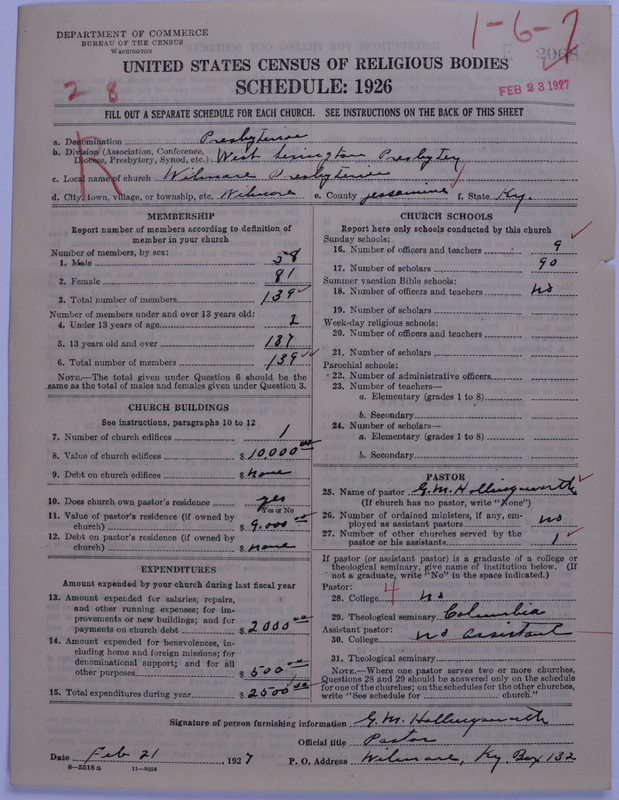 DEPARTMENT OF COMMERCE
BUREAU OF THE CENSUS
WASHINGTON
1-6-7
2068
UNITED STATES CENSUS OF RELIGIOUS BODIES
SCHEDULE: 1926
FEB 23 1927
2 8
FILL OUT A SEPARATE SCHEDULE FOR EACH CHURCH. SEE INSTRUCTIONS ON THE BACK OF THIS SHEET
R
a. Denomination Presbyterian
b. Division (Association, Conference, Diocese, Presbytery, Synod, etc.) West Lexington Presbytery
c. Local name of church Wilmore Presbyterian
d. City, town, village, or township, etc. Wilmore e. County Jessamine f. State Ky.
MEMBERSHIP
Report number of members according to definition of
member in your church
Number of members, by sex:
1. Male 58
2. Female 81
3. Total number of members 139
Number of members under and over 13 years old:
4. Under 13 years of age 2
5. 13 years old and over 137
6. Total number of members 139
NOTE.—The total given under Question 6 should be the
same as the total of males and females given under Question 3.
CHURCH BUILDINGS
See instructions, paragraphs 10 to 12
7. Number of church edifices 1
8. Value of church edifices $ 10000 00
9. Debt on church edifices $ None
10. Does church own pastor's residence yes
Yes or No
11. Value of pastor's residence (if owned by
church) $ 9.000 00
12. Debt on pastor's residence (if owned by
church) $ None
EXPENDITURES
Amount expended by your church during last fiscal year
13. Amount expended for salaries, repairs,
and other running expenses; for im-
provements or new buildings; and for
payments on church debt $ 2000 00
14. Amount expended for benevolences, in-
cluding home and foreign missions; for
denominational support; and for all
other purposes $ 500 00
15. Total expenditures during year $ 2500 00
CHURCH SCHOOLS
Report here only schools conducted by this church
Sunday schools:
16. Number of officers and teachers 9
17. Number of scholars 90
Summer vacation Bible schools:
18. Number of officers and teachers No
19. Number of scholars
Week-day religious schools:
20. Number of officers and teachers
21. Number of scholars
Parochial schools:
22. Number of administrative officers
23. Number of teachers—
a. Elementary (grades 1 to 8)
b. Secondary
24. Number of scholars—
a. Elementary (grades 1 to 8)
b. Secondary
PASTOR
25. Name of pastor G. M. Hollingsworth
(If church has no pastor, write "None")
26. Number of ordained ministers, if any, em-
ployed as assistant pastors No
27. Number of other churches served by the
pastor or his assistants 1
If pastor (or assistant pastor) is a graduate of a college or
theological seminary, give name of institution below. (If
not a graduate, write "No" in the space indicated.)
Pastor:
28. College 4 No
29. Theological seminary Columbia
Assistant pastor:
30. College No assistant
31. Theological seminary
NOTE.—Where one pastor serves two or more churches,
Questions 28 and 29 should be answered only on the schedule
for one of the churches; on the schedules for the other churches,
write "See schedule for church."
Signature of person furnishing information G. M. Hollingsworth
Official title Pastor
Date Feb 21, 1927 P. O. Address Wilmore, Ky. Box 132
8—5518 a 11—9254